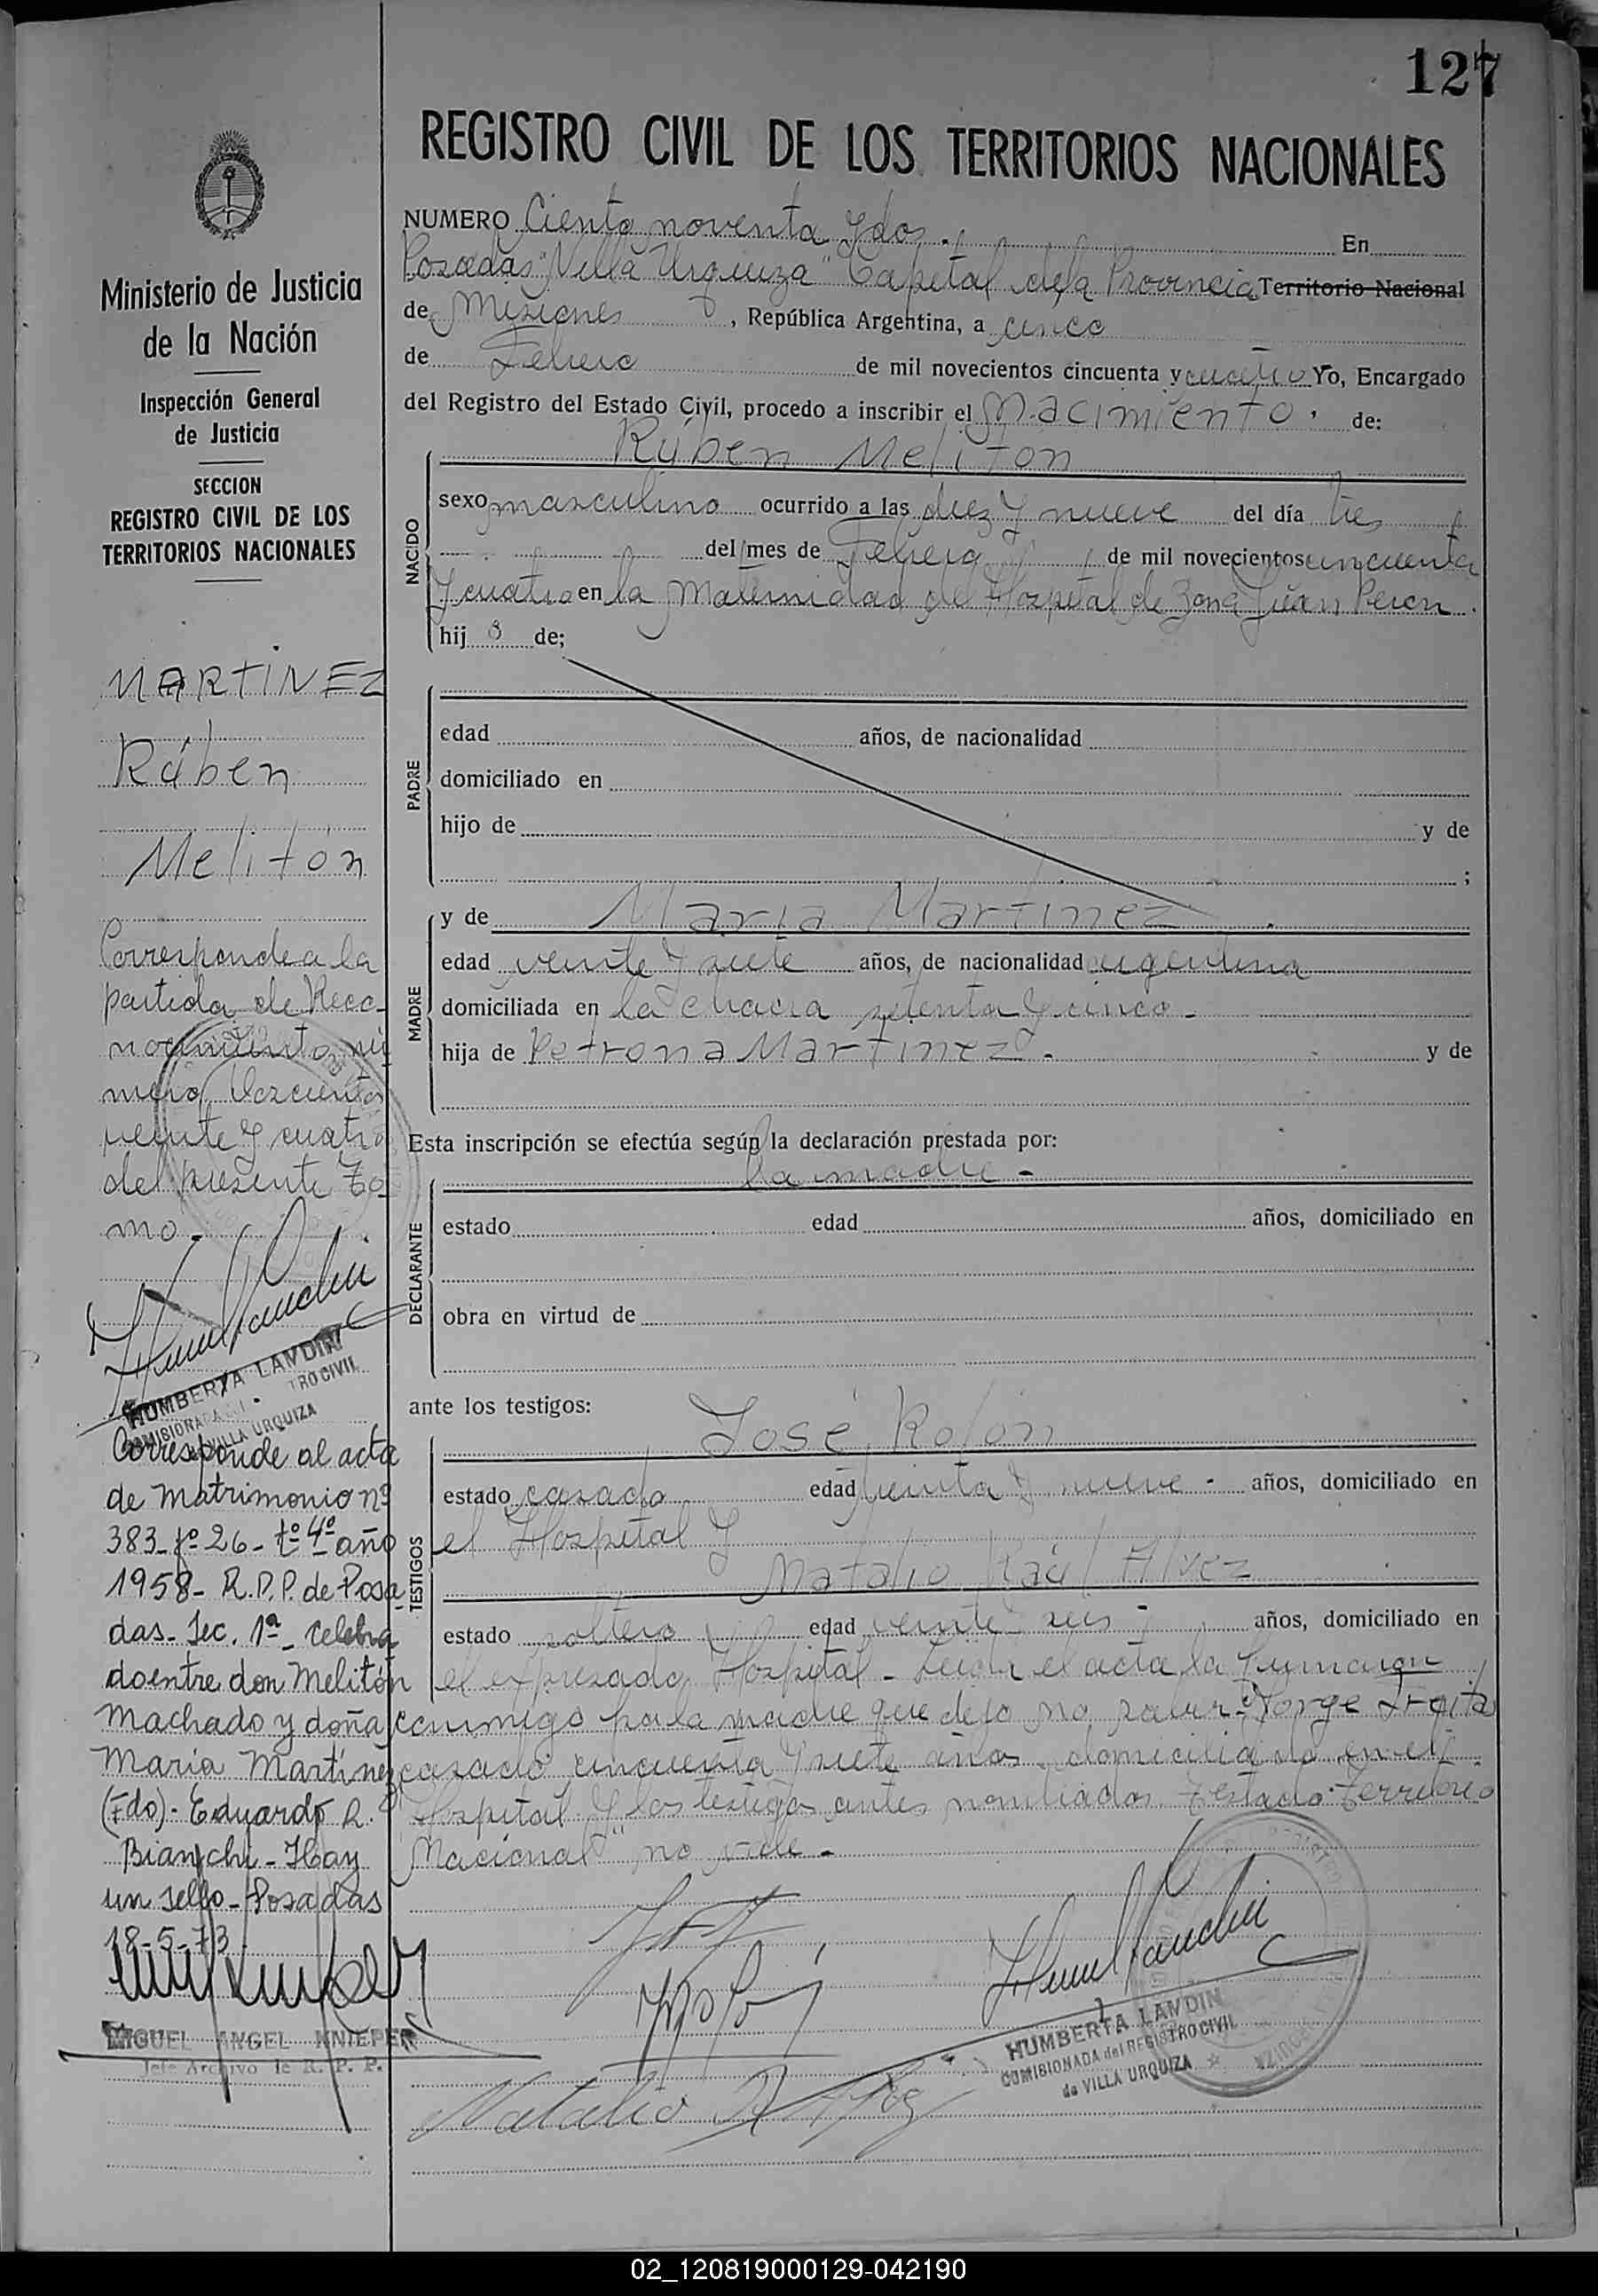 127
REGISTRO CIVIL DE LOS TERRITORIOS NACIONALES
Ministerio de Justicia
de la Nación
Inspección General
de Justicia
SECCION
REGISTRO CIVIL DE LOS
TERRITORIOS NACIONALES
MARTINEZ
Rúben
Melitón
Corresponde a la
partida de Reco-
nocimiento nú
mero doscientos
veinte y cuatro
del presente To-
mo.
HUMBERTA LANDIN
COMISIONADA TRO CIVIL
VILLA URQUIZA
Corresponde al acta
de matrimonio nº
383-fº 26-tº 4º año
1958- R.P.P. de Posa
das- Sec. 1ª- celebra
do entre don Melitón
Machado y doña
María Martínez
(Fdo)- Eduardo R.
Bianchi- Hay
un sello- Posadas
18-5-73
MIGUEL ANGEL KNIEPER
Jefe Archivo de R. P. P.
NUMERO Ciento noventa y dos. En
Posadas "Villa Urquiza" Capital de la Provincia Territorio Nacional
de Misiones, República Argentina, a cinco
de Febrero de mil novecientos cincuenta y cuatro Yo, Encargado
del Registro del Estado Civil, procedo a inscribir el Nacimiento. de:
Rúben Melitón
NACIDO
sexo masculino ocurrido a las diez y nueve del día tres
del mes de Febrero de mil novecientos cincuenta
y cuatro en la Maternidad del Hospital de Zona Juan Peron.
hij o de;
PADRE
edad años, de nacionalidad
domiciliado en
hijo de y de
;
MADRE
y de María Martínez.
edad veinte y siete años, de nacionalidad argentina
domiciliada en la chacra setenta y cinco-
hija de Petrona Martínez. y de
Esta inscripción se efectúa según la declaración prestada por:
la madre-
DECLARANTE
estado edad años, domiciliado en
obra en virtud de
ante los testigos:
TESTIGOS
José Rolón
estado casado edad treinta y nueve- años, domiciliado en
el Hospital y
Natalio Raúl Alvez
estado soltero edad veinte seis- años, domiciliado en
el expresado Hospital- Leída el acta la firmaron
conmigo por la madre que dejo no saber- Jorge
casado cincuenta y siete años domiciliado en el
Hospital y los testigos antes nombrados Testado: Territorio
Nacional" no vale-
Natalio R Alvez
HUMBERTA LANDIN
COMISIONADA del REGISTRO CIVIL
de VILLA URQUIZA
02_120819000129-042190